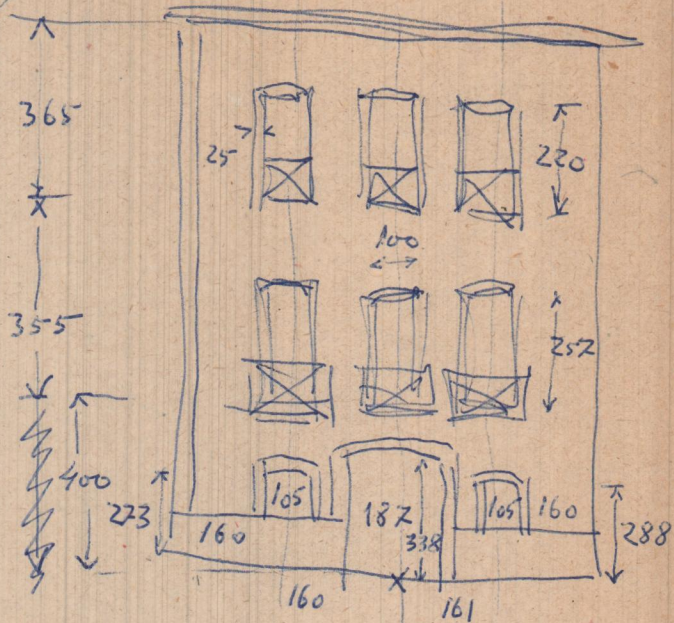 365
25
220
100
355
252
400
273
105
187
105
160
160
338
288
160
161